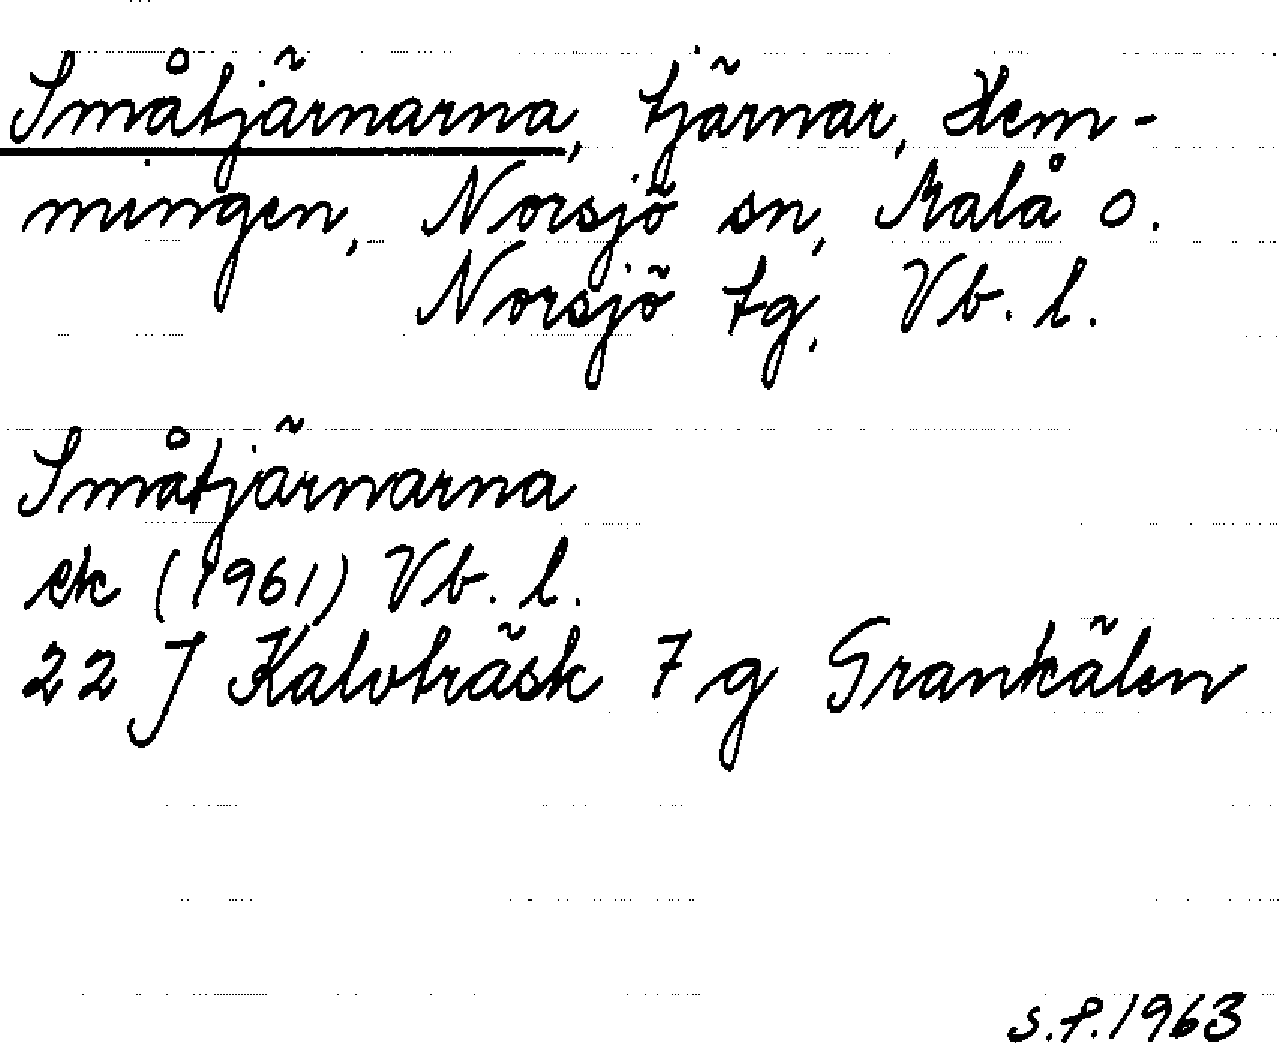 Småtjärnarna, tjärnar, Hem-
mingen, Norsjö sn, Malå o.
Norsjö tg, Vb. l.
Småtjärnarna
ek (1961) Vb. l.
22 J Kalvträsk 7 g Grankälen
s.f. 1963